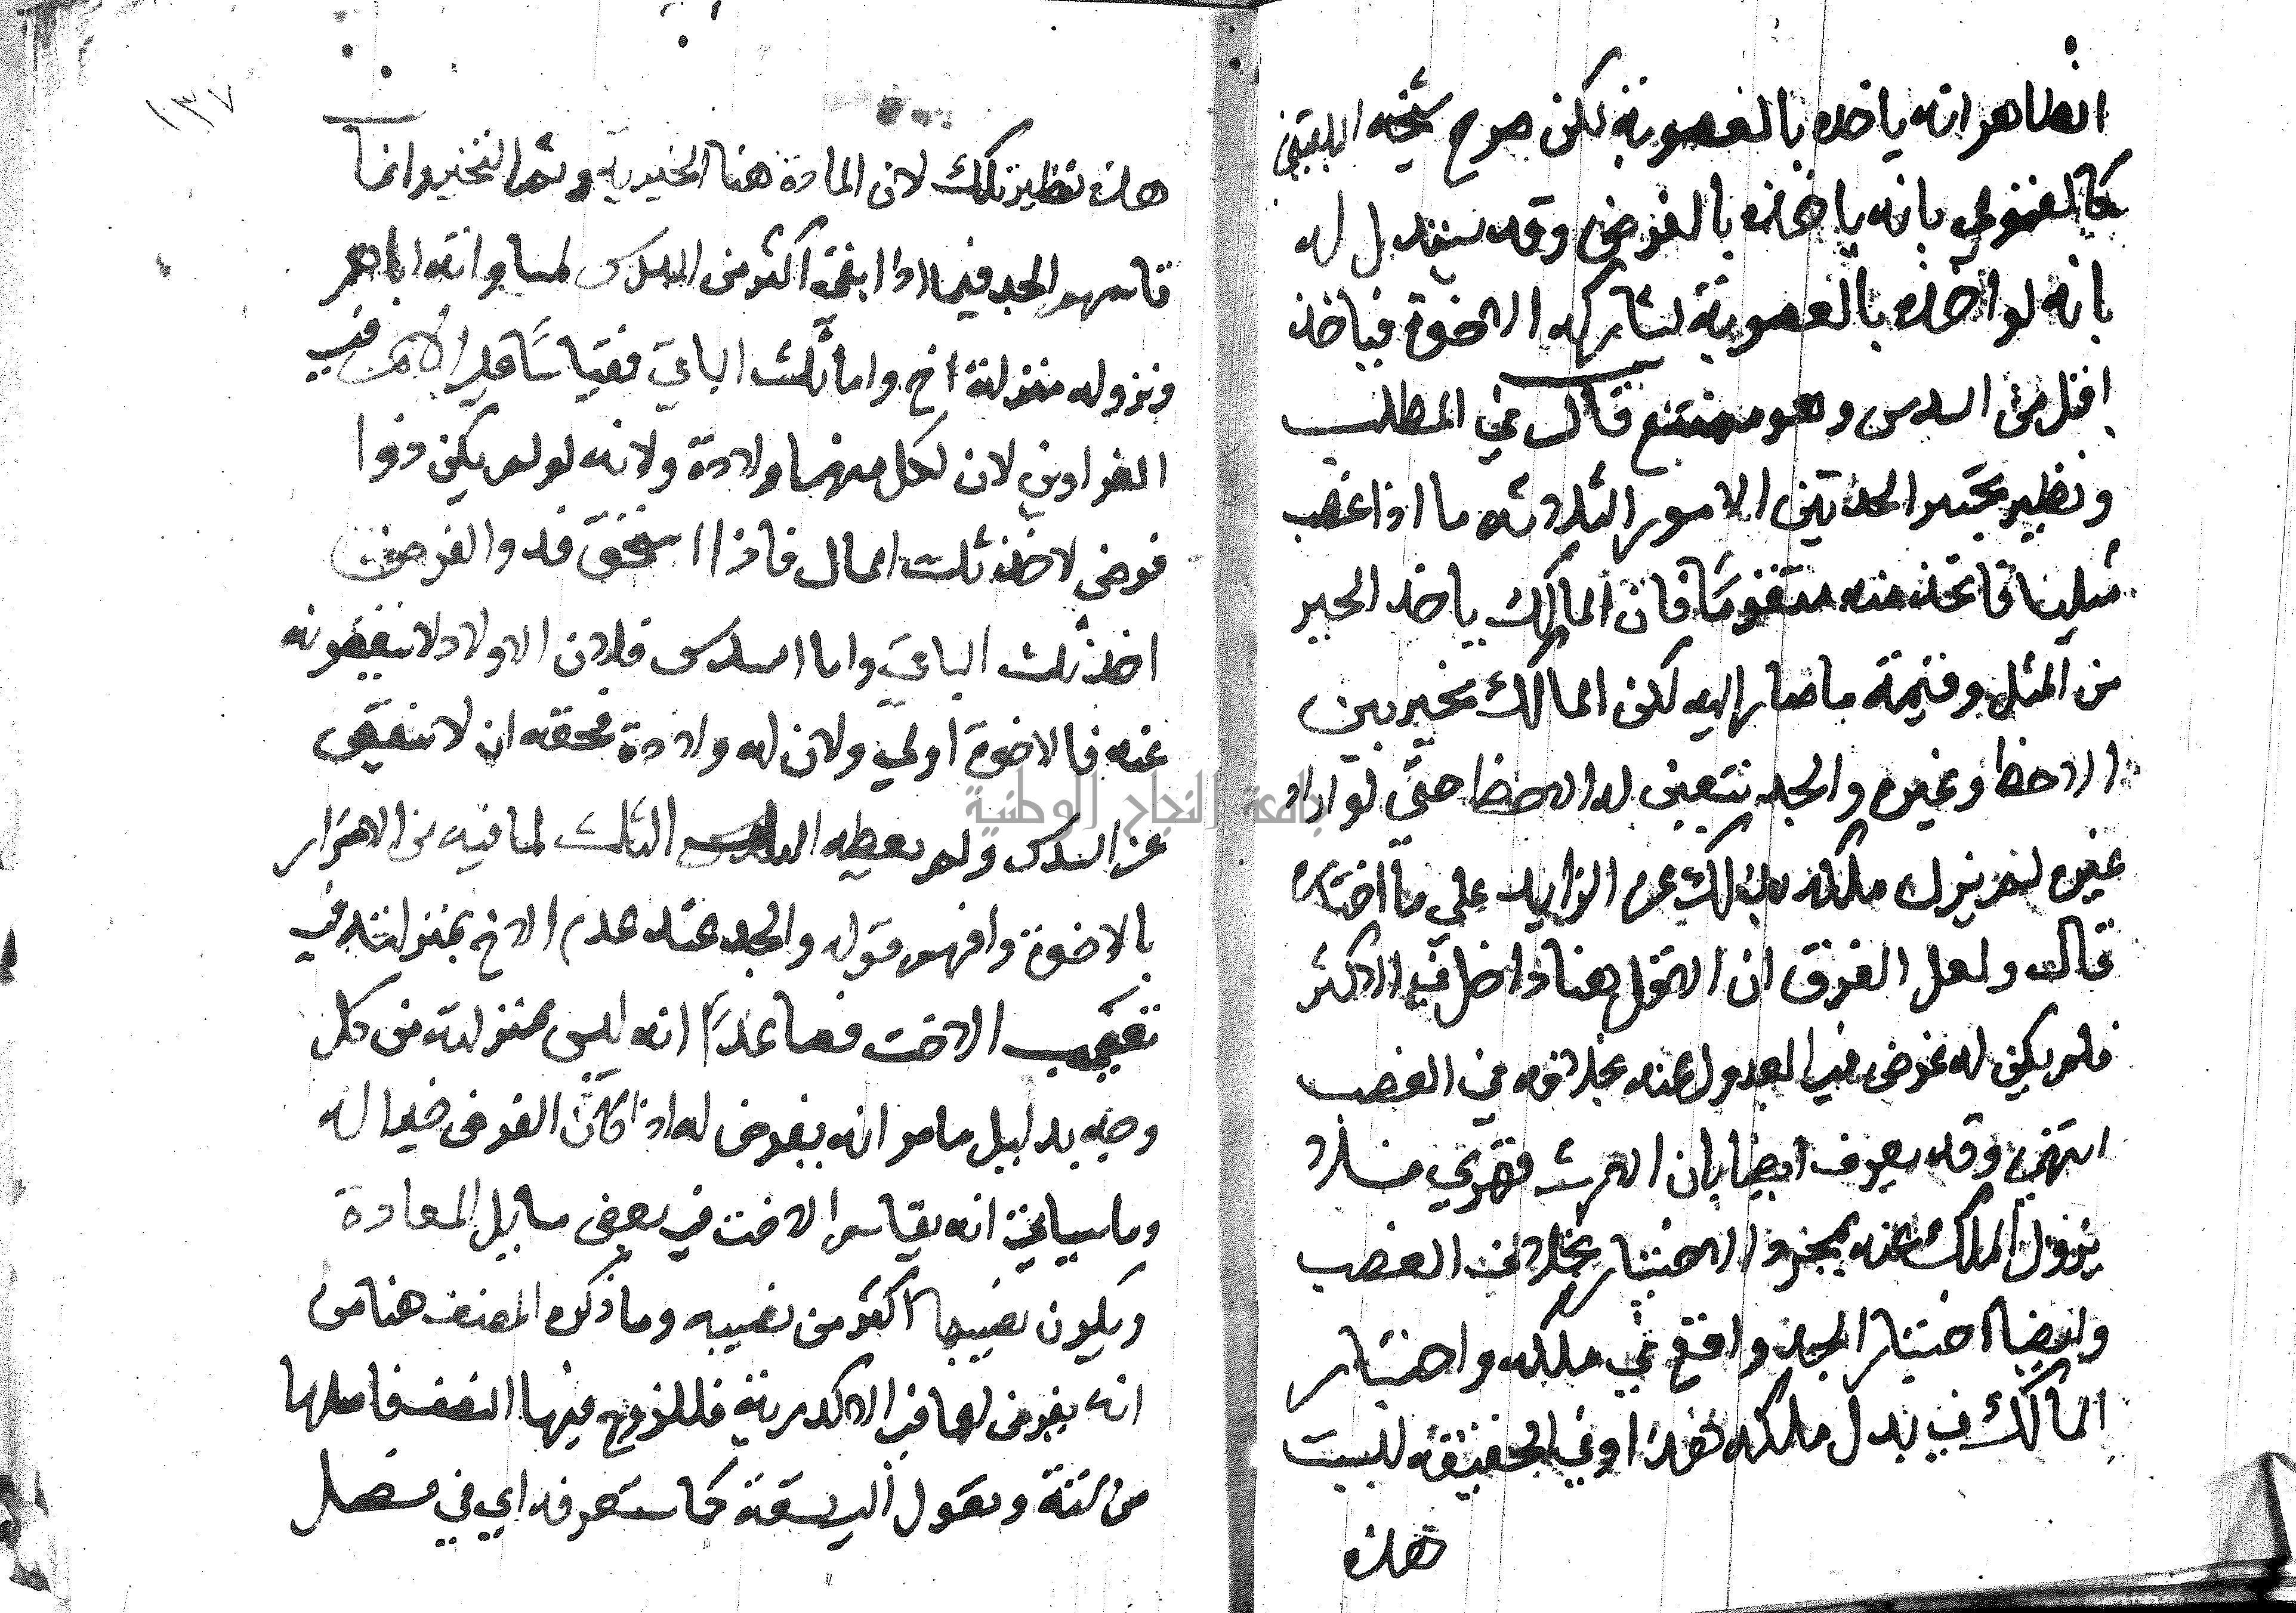 الظاهر انه ياخذه بالعصوبة لكن صرح شيخه البلقيني
كالمغنولي بانه ياخذه بالفرض وقد يستدل له
بانه لو اخذه بالعصوبة لشاركه الاخوة فياخذ
اقل من السدس وهو ممتنع قال في المطلب
ونظير تخير الجد بين الامور الثلاثه ما اذا غصب
مثليا فاتخذ منه متقوما فان المالك ياخذ الخير
من المثل وقيمة ما صار اليه لكن المالك مخير بين
الاحظ وغيره والجد يتعين له الاحظ حتى لو اراد
غيره لم يزل ملكه بذلك عن الزايد على ما اختاره
قال ولعل الفرق ان الاقل هنا داخل في الاكثر
فلم يكن له غرض في العدول عنه بخلافه في الغصب
انتهى وقد يعرف ايضا بان الارث قهري فلا
يزول الملك عنه بمجرد الاختيار بخلاف الغصب
وايضا اختيار الجد واقع في ملكه واختيار
المالك في بدل ملكه هذا وفي الحقيقة ليست
هذه
١٣٧
هذه نظير تلك لان المادة هنا الخيرية وثم التخير انما
قاسمهم الجد فيما اذا ابقى اكثر من السدس لمساواته اياهم
ونزوله منزلة اخ واما ثلث الباقي فقياسا على الام في
الغراوين لان لكل منهما ولادة ولانه لو لم يكن ذوا
فرض لاخذ ثلث المال فاذا استحق قدر الفرض
اخذ ثلث الباقي واما السدس فلان الاولاد لا ينقصونه
عنه فالاخوة اولى ولان له ولادة فحقه ان لا ينقص
عن السدس ولم يعطه الثلث لما فيه من الاضرار
بالاخوة وافهم قوله والجد عند عدم الاخ بمنزلته في
تعصيب الاخت فصاعدا انه ليس بمنزلته من كل
وجه بدليل ما مر انه يفرض له اذا كان الفرض خيرا له
وما سياتي انه يقاسم الاخت في بعض مسايل المعادة
ويكون نصيبها اكثر من نصيبه وما ذكره المصنف هنا من
انه يفرض لها في الاكدرية فللزوج فيها النصف فاصلها
من ستة وتعول الى تسعة كما ستعرفه اي في فصل
جامعة النجاح الوطنية